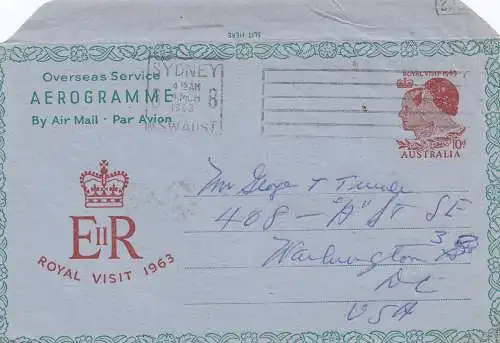 SLIT HERE
Overseas Service
AEROGRAMME
By Air Mail · Par Avion
SYDNEY
AM
1963
N.S.W AUST
8
ROYAL VISIT 1963
10d
AUSTRALIA
EIIR
ROYAL VISIT 1963
Mr George T
408 - "A" St SE
Washington 3
DC
USA